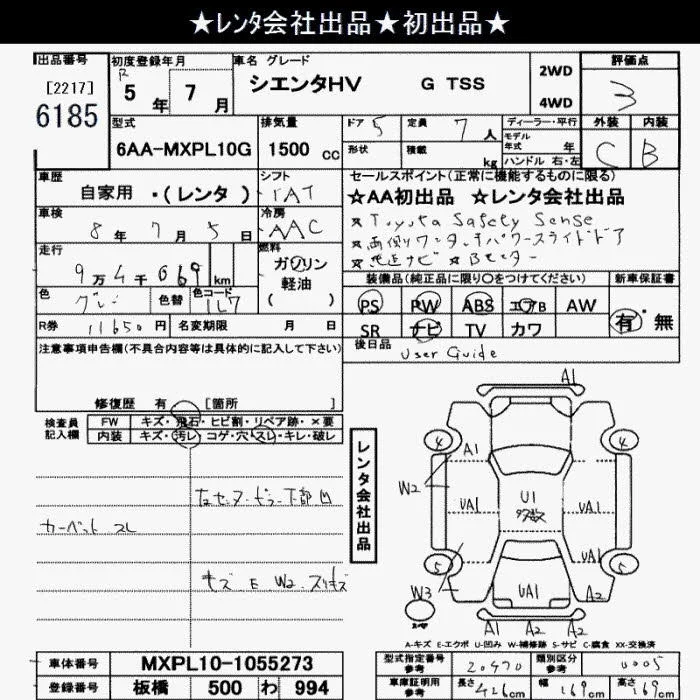 ★レンタ会社出品★初出品★
出品番号
[2217]
6185
初度登録年月
R5年7月
車名 グレード
シエンタHV G TSS
2WD
4WD
評価点
3
型式
6AA-MXPL10G
排気量
1500 cc
ドア 5
定員 7人
形状
積載 kg
ディーラー・平行
モデル年式 年
ハンドル 右・左
外装 C
内装 B
車歴
自家用 ・(レンタ)
シフト
IAT
セールスポイント(正常に機能するものに限る)
☆AA初出品 ☆レンタ会社出品
★Toyota Safety Sense
★両側ワンタッチパワースライドドア
★純正ナビ ★Bモニター
車検
8年7月5日
冷房
AAC
走行
9万4千069km
燃料
ガソリン
軽油
( )
色
グレー
色替
色コード
1L7
装備品(純正品に限り○をつけてください)
PS PW ABS エアB AW
SR ナビ TV カワ
新車保証書
有・無
R券 11650円
名変期限 月 日
後日品
User Guide
注意事項申告欄(不具合内容等は具体的に記入して下さい)
修復歴 有 [箇所 ]
検査員記入欄
FW キズ・飛石・ヒビ割・リペア跡・×要
内装 キズ・汚レ・コゲ・穴・スレ・キレ・破レ
カーペット スレ
キズ E W2 スリキズ
レンタ会社出品
A1
4
4
A1
W2
UA1
U1
多数
UA1
UA1
5
5
W3
UA1
A2
A1 A2 A2
スペア
A-キズ E-エクボ U-凹み W-補修跡 S-サビ C-腐食 XX-交換済
車体番号
MXPL10-1055273
登録番号
板橋 500 わ 994
型式指定番号 参考
20470
類別区分 参考
0005
車庫証明用 参考
長さ 426cm
幅 169cm
高さ 169cm